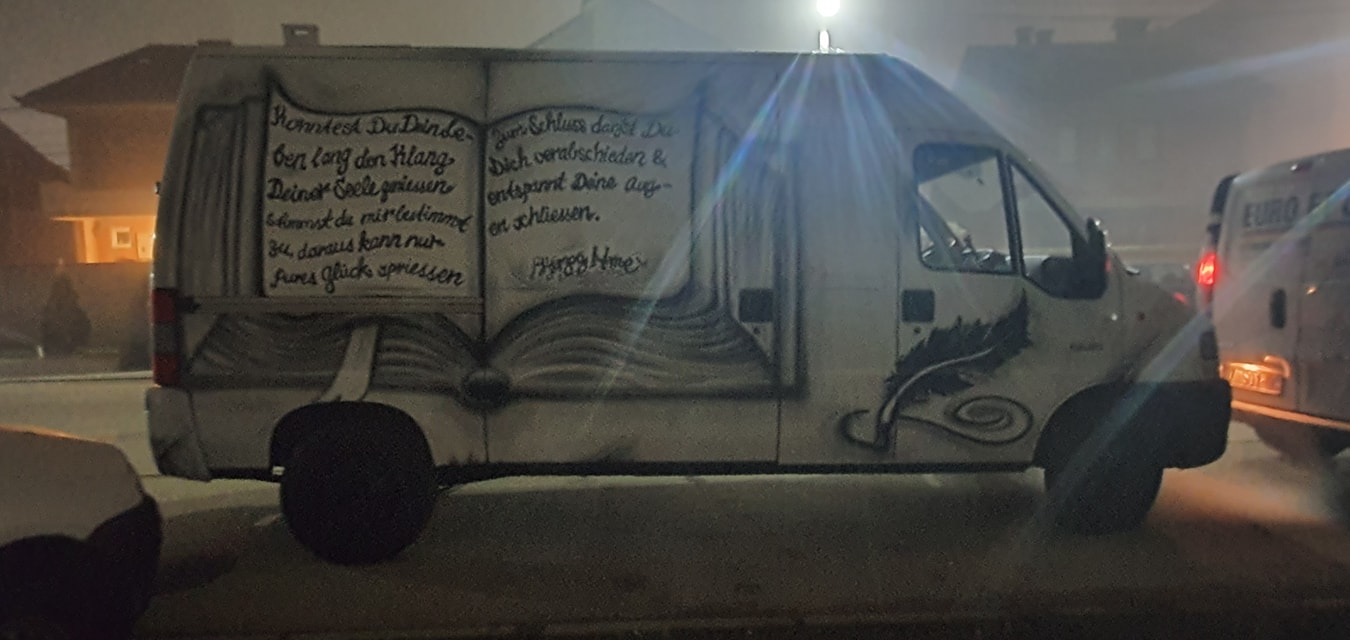 Konntest Du Dein Le-
ben lang den Klang
Deiner Seele geniessen
stimmst du mir bestimmt
zu, daraus kann nur
pures Glück spriessen
Zum Schluss darfst Du
Dich verabschieden &
entspannt Deine Aug-
en schliessen.
EURO